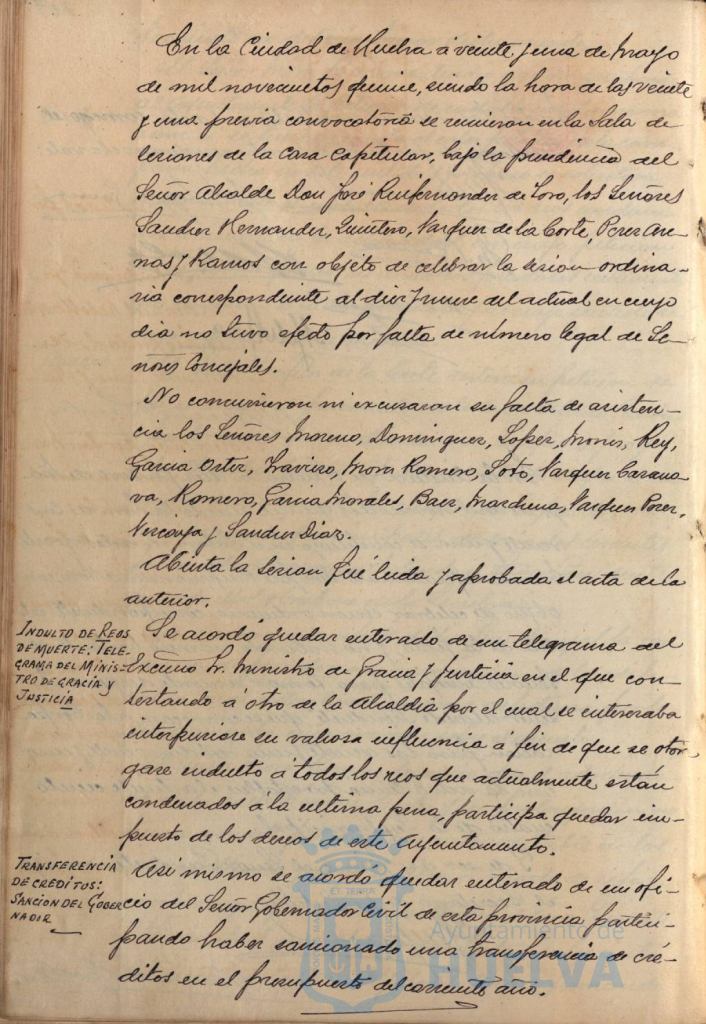 En la Ciudad de Huelva á veinte y una de Mayo
de mil novecientos quince, siendo la hora de las veinte
y una previa convocatoria se reunieron en la Sala de
sesiones de la Casa Capitular, bajo la presidencia del
Señor Alcalde Don José Ruifernandez de Toro, los Señores
Sanchez Hernandez, Quintero, Vazquez de la Corte, Perez Are-
nas y Ramos con objeto de celebrar la sesion ordina-
ria correspondiente al diez y nueve del actual en cuyo
dia no tuvo efecto por falta de número legal de Se-
ñores Concejales.
No concurrieron ni excusaron su falta de asisten-
cia los Señores Moreno, Dominguez, Lopez, Monis, Rey,
Garcia Ortiz, Mora Romero, Soto, Vazquez Casano-
va, Romero, Garcia Morales, Baez, Marchena, Vazquez Perez,
Vizcaya y Sanchez Diaz.
Abierta la sesion fué leida y aprobada el acta de la
anterior.
INDULTO DE REOS
DE MUERTE: TELE-
GRAMA DEL MINIS-
TRO DE GRACIA Y
JUSTICIA
Se acordó quedar enterado de un telegrama del
Excmo Sr. Ministro de Gracia y Justicia en el que con-
testando á otro de la Alcaldia por el cual se interesaba
interpusiere su valiosa influencia á fin de que se otor-
gase indulto á todos los reos que actualmente están
condenados á la ultima pena, participa quedar im-
puesto de los deseos de este Ayuntamiento.
TRANSFERENCIA
DE CREDITOS:
SANCION DEL GOBER
NADOR
Asi mismo se acordó quedar enterado de un ofi-
cio del Señor Gobernador Civil de esta provincia partici-
pando haber sancionado una transferencia de cré-
ditos en el presupuesto del corriente año.
Ayuntamiento de
HUELVA